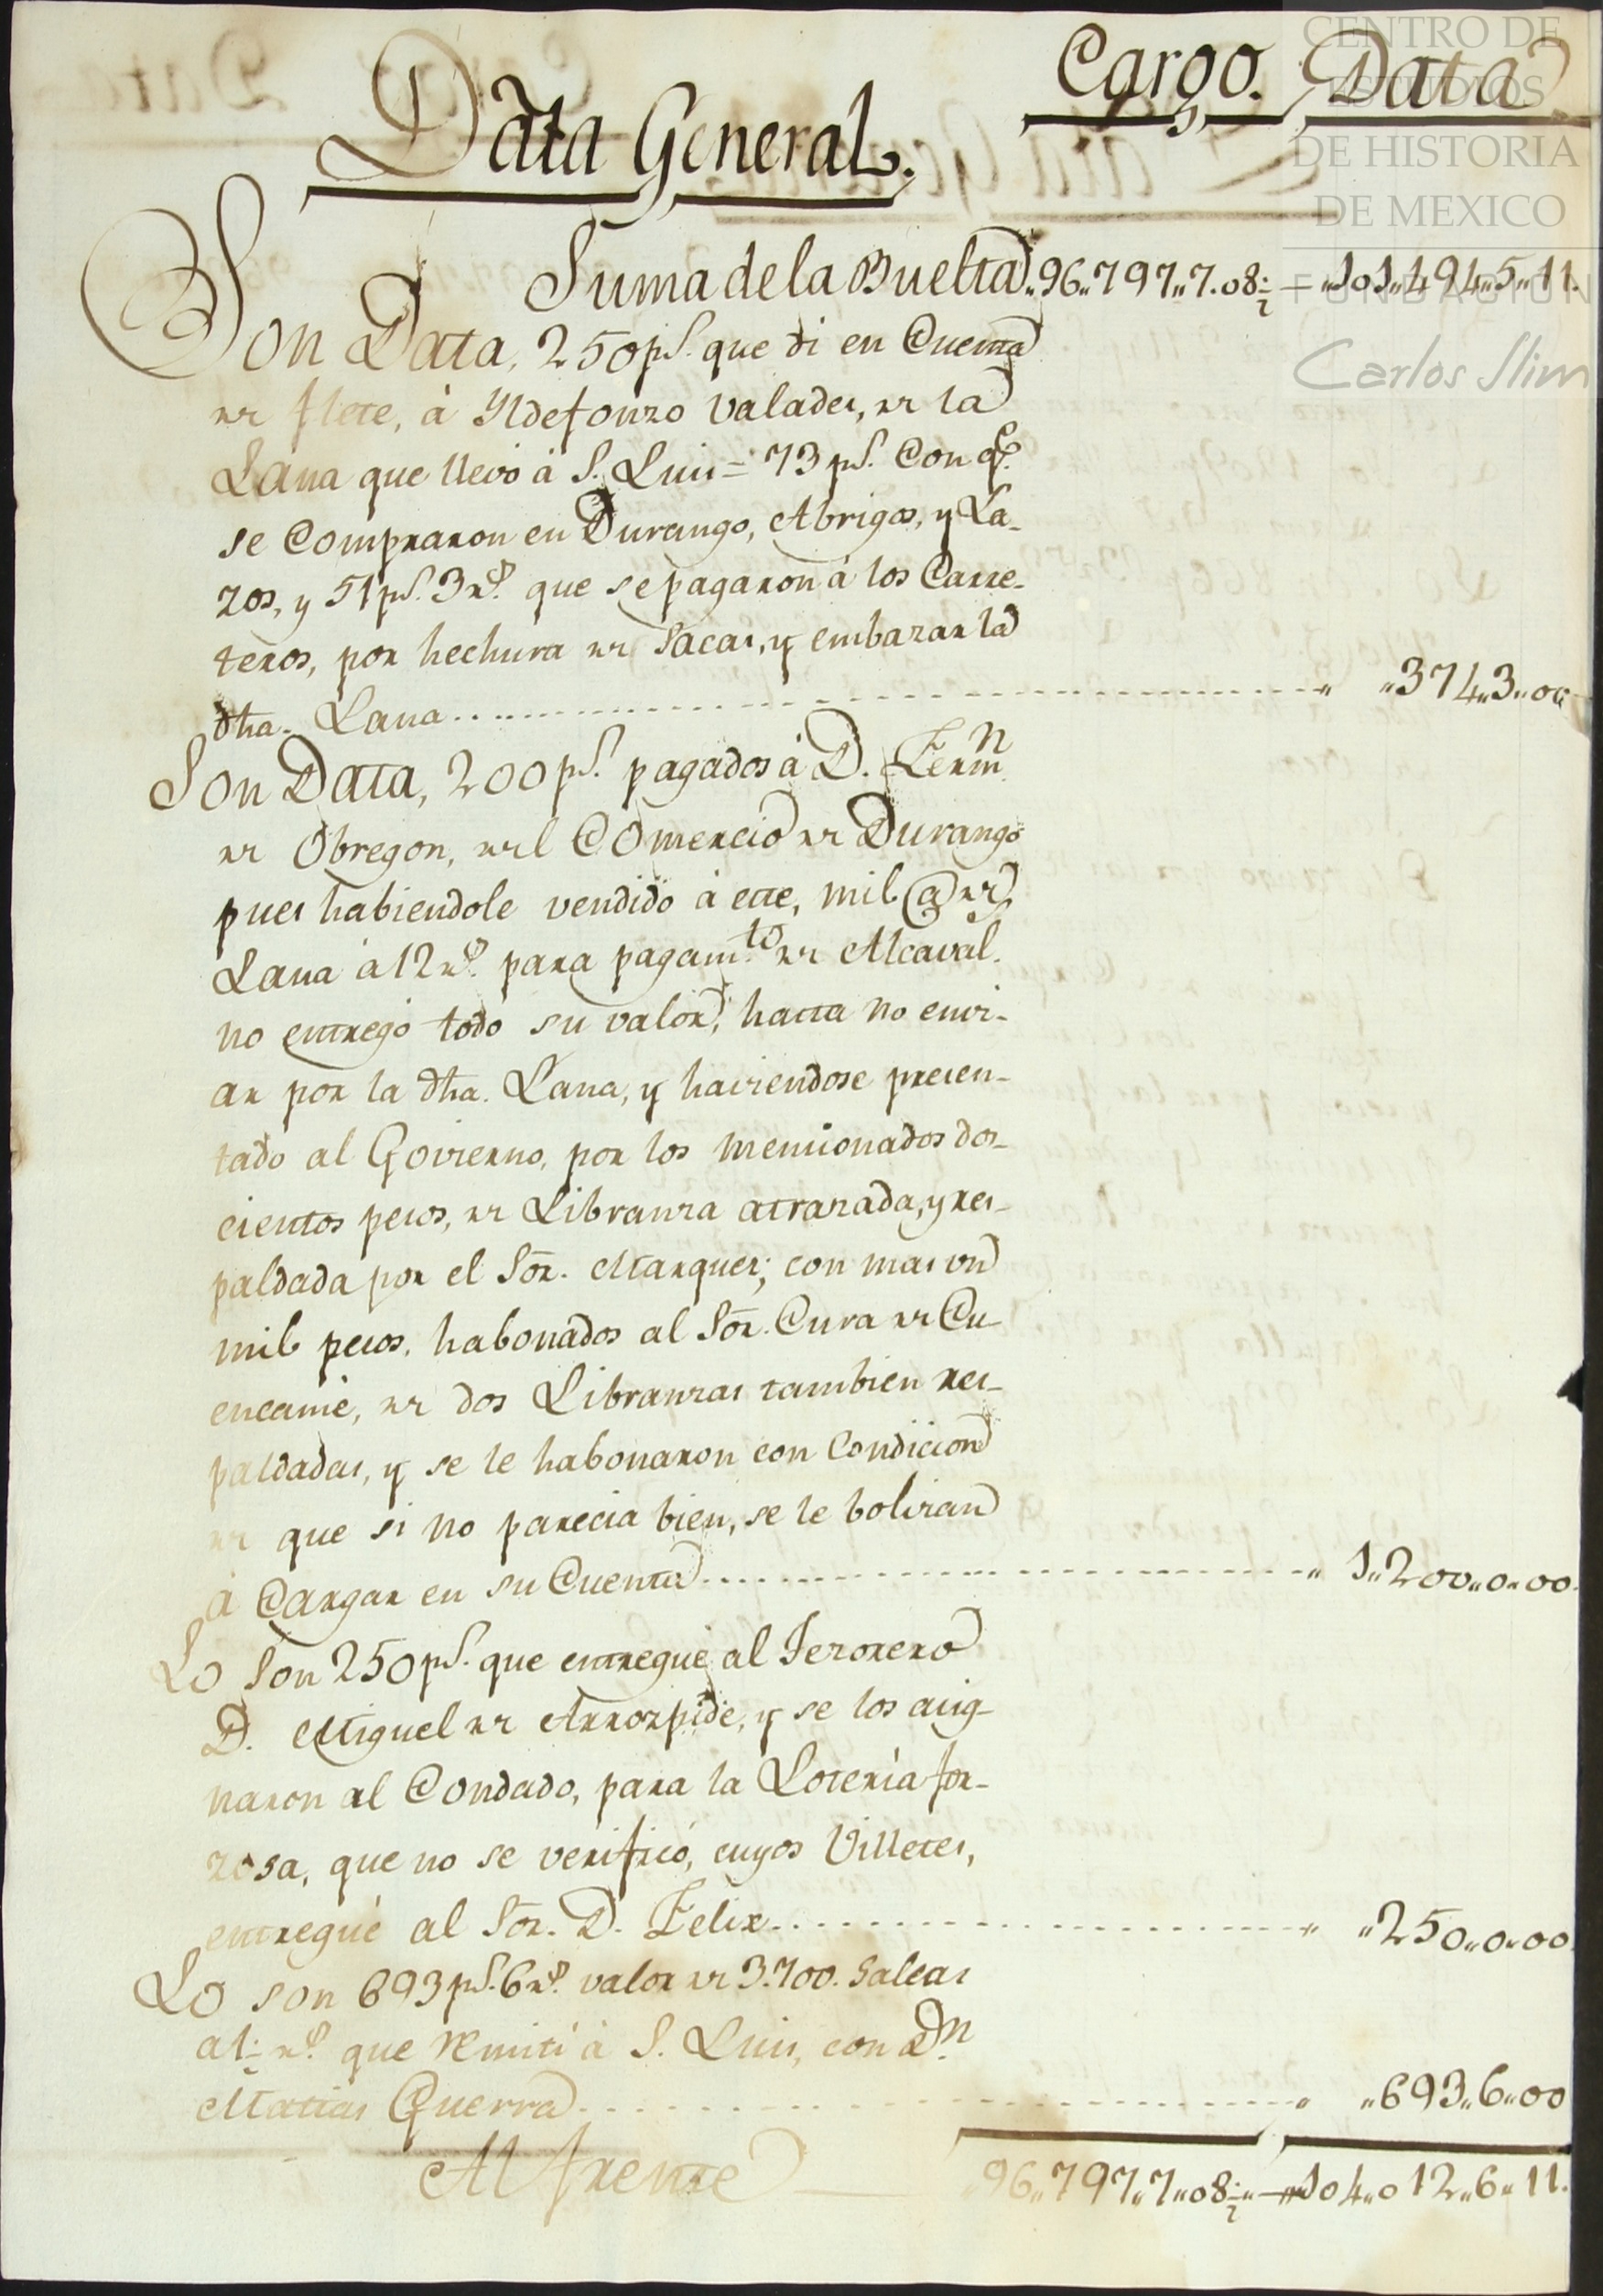 CENTRO DE
ESTUDIOS
DE HISTORIA
DE MEXICO
FUNDACIÓN
Carlos Slim
Cargo. Data
Data General.
Suma de la Buelta. 96,,797,,7,,08½ — ,,101,,494,,5,,11.
Son Data, 250 ps. que di en Cuenta
de flete, à Yldefonzo Valades, de la
Lana que llevò à S. Luis = 73 ps. Con qe.
se Compraron en Durango, Abrigos, y La-
zos, y 51 ps. 3 rs. que se pagaron à los Carre-
teros, por hechura de Sacas, y embazar la
dha. Lana ,, ,,374,,3,,00
Son Data, 200 ps. pagados à D. Fermn.
de Obregon, del Comercio de Durango
pues habiendole vendido à este, mil @ de
Lana à 12 rs. para pagamto. de Alcaval.
no entregò todo su valor, hasta no envi-
ar por la dha. Lana, y haviendose presen-
tado al Govierno, por los mencionados dos-
cientos pesos, de Libranza atrazada, y res-
paldada por el Sor. Marques; con mas un
mil pesos, habonados al Sor. Cura de Cu-
encamè, de dos Libranzas tambien res-
paldadas, y se le habonaron con Condicion
de que si no parecia bien, se le bolviran
à Cargar en su Cuenta ,, 1,,200,,0,,00.
Lo Son 250 ps. que entreguè al Tezorero
D. Miguel de Arrozpide, y se los asig-
naron al Condado, para la Loterìa for-
zosa, que no se verificò, cuyos Villetes,
entreguè al Sor. D. Felix ,, ,,250,,0,,00
Lo son 693 ps. 6 rs. valor de 3.700. Saleas
a 1½ rs. que remitì à S. Luis, con Dn.
Matias Guerra ,, ,,693,,6,,00
Al frente — 96,,797,,7,,08½,,—,,104,,012,,6,,11.